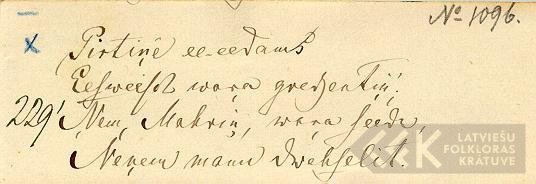 № 1096.
x Pirtiņē ee-eedams
Eesweežst wara gredzentiņ'.
229' Ņem, Mahriņ, wara seedu,
Neņem manu dwehselit.
LATVIEŠU
FOLKLORAS
KRĀTUVE